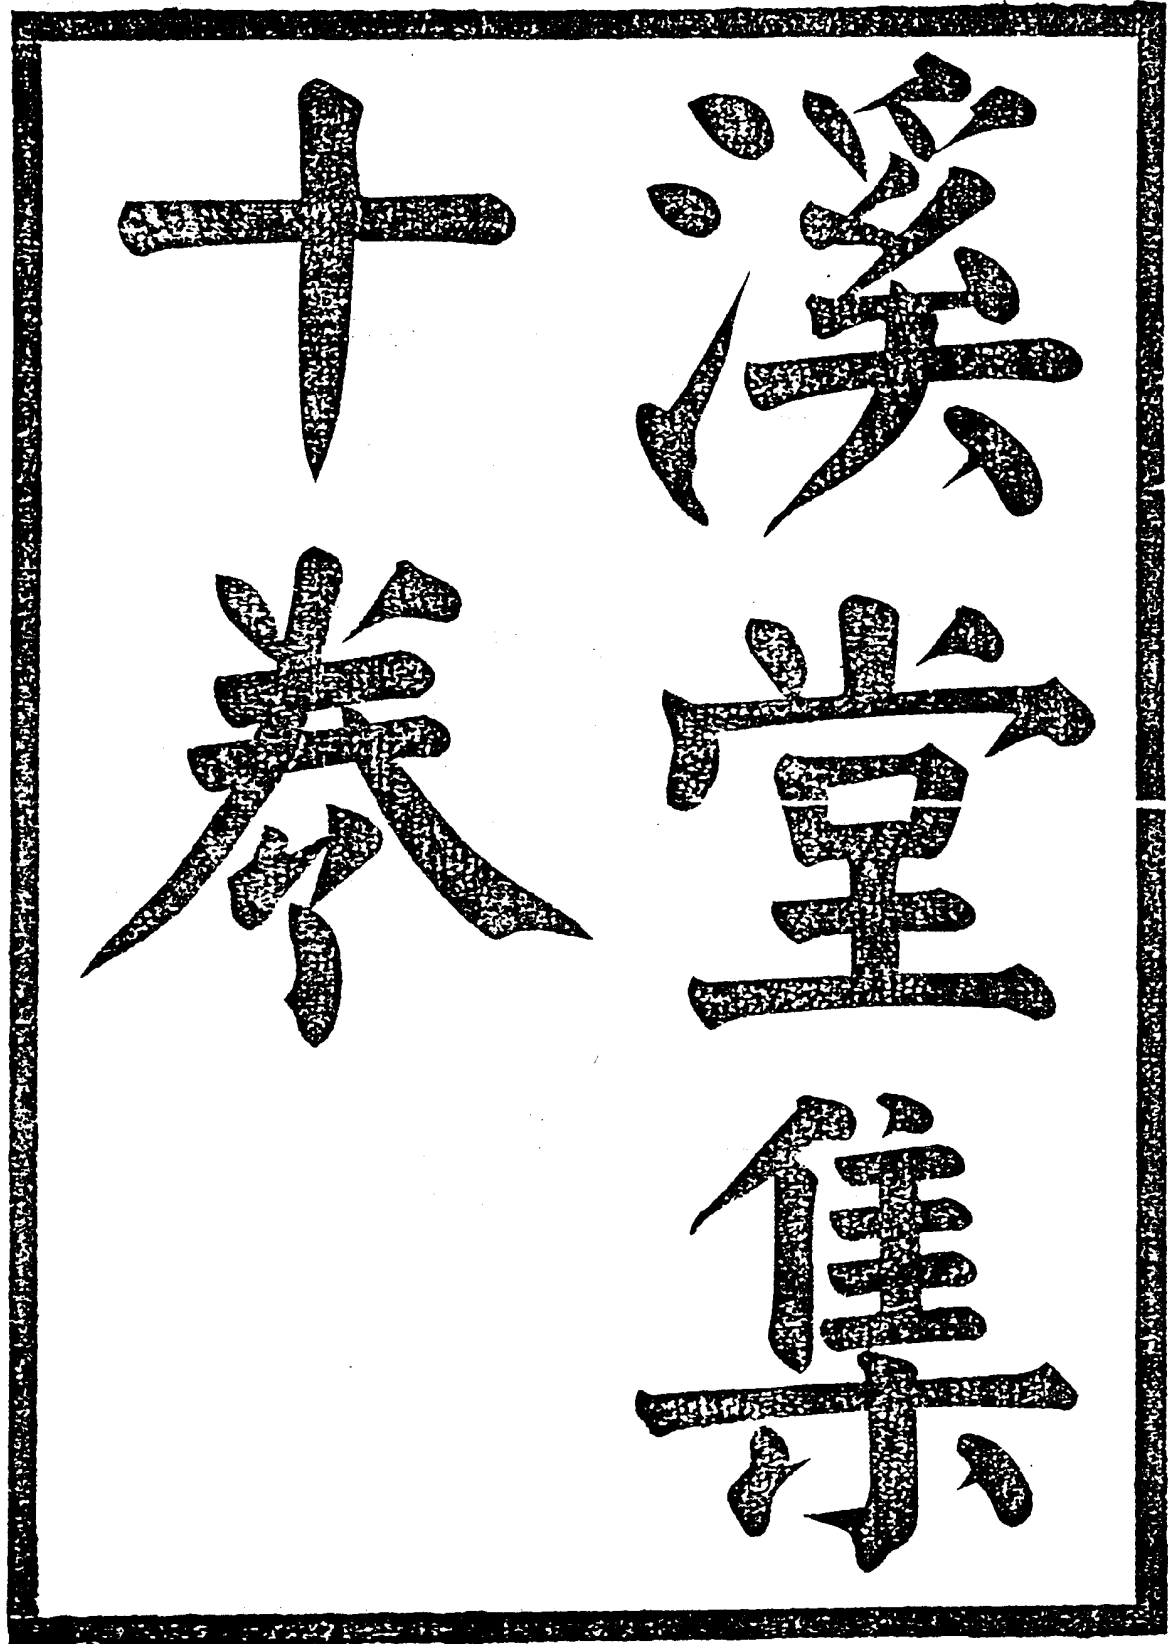 溪堂集
十卷